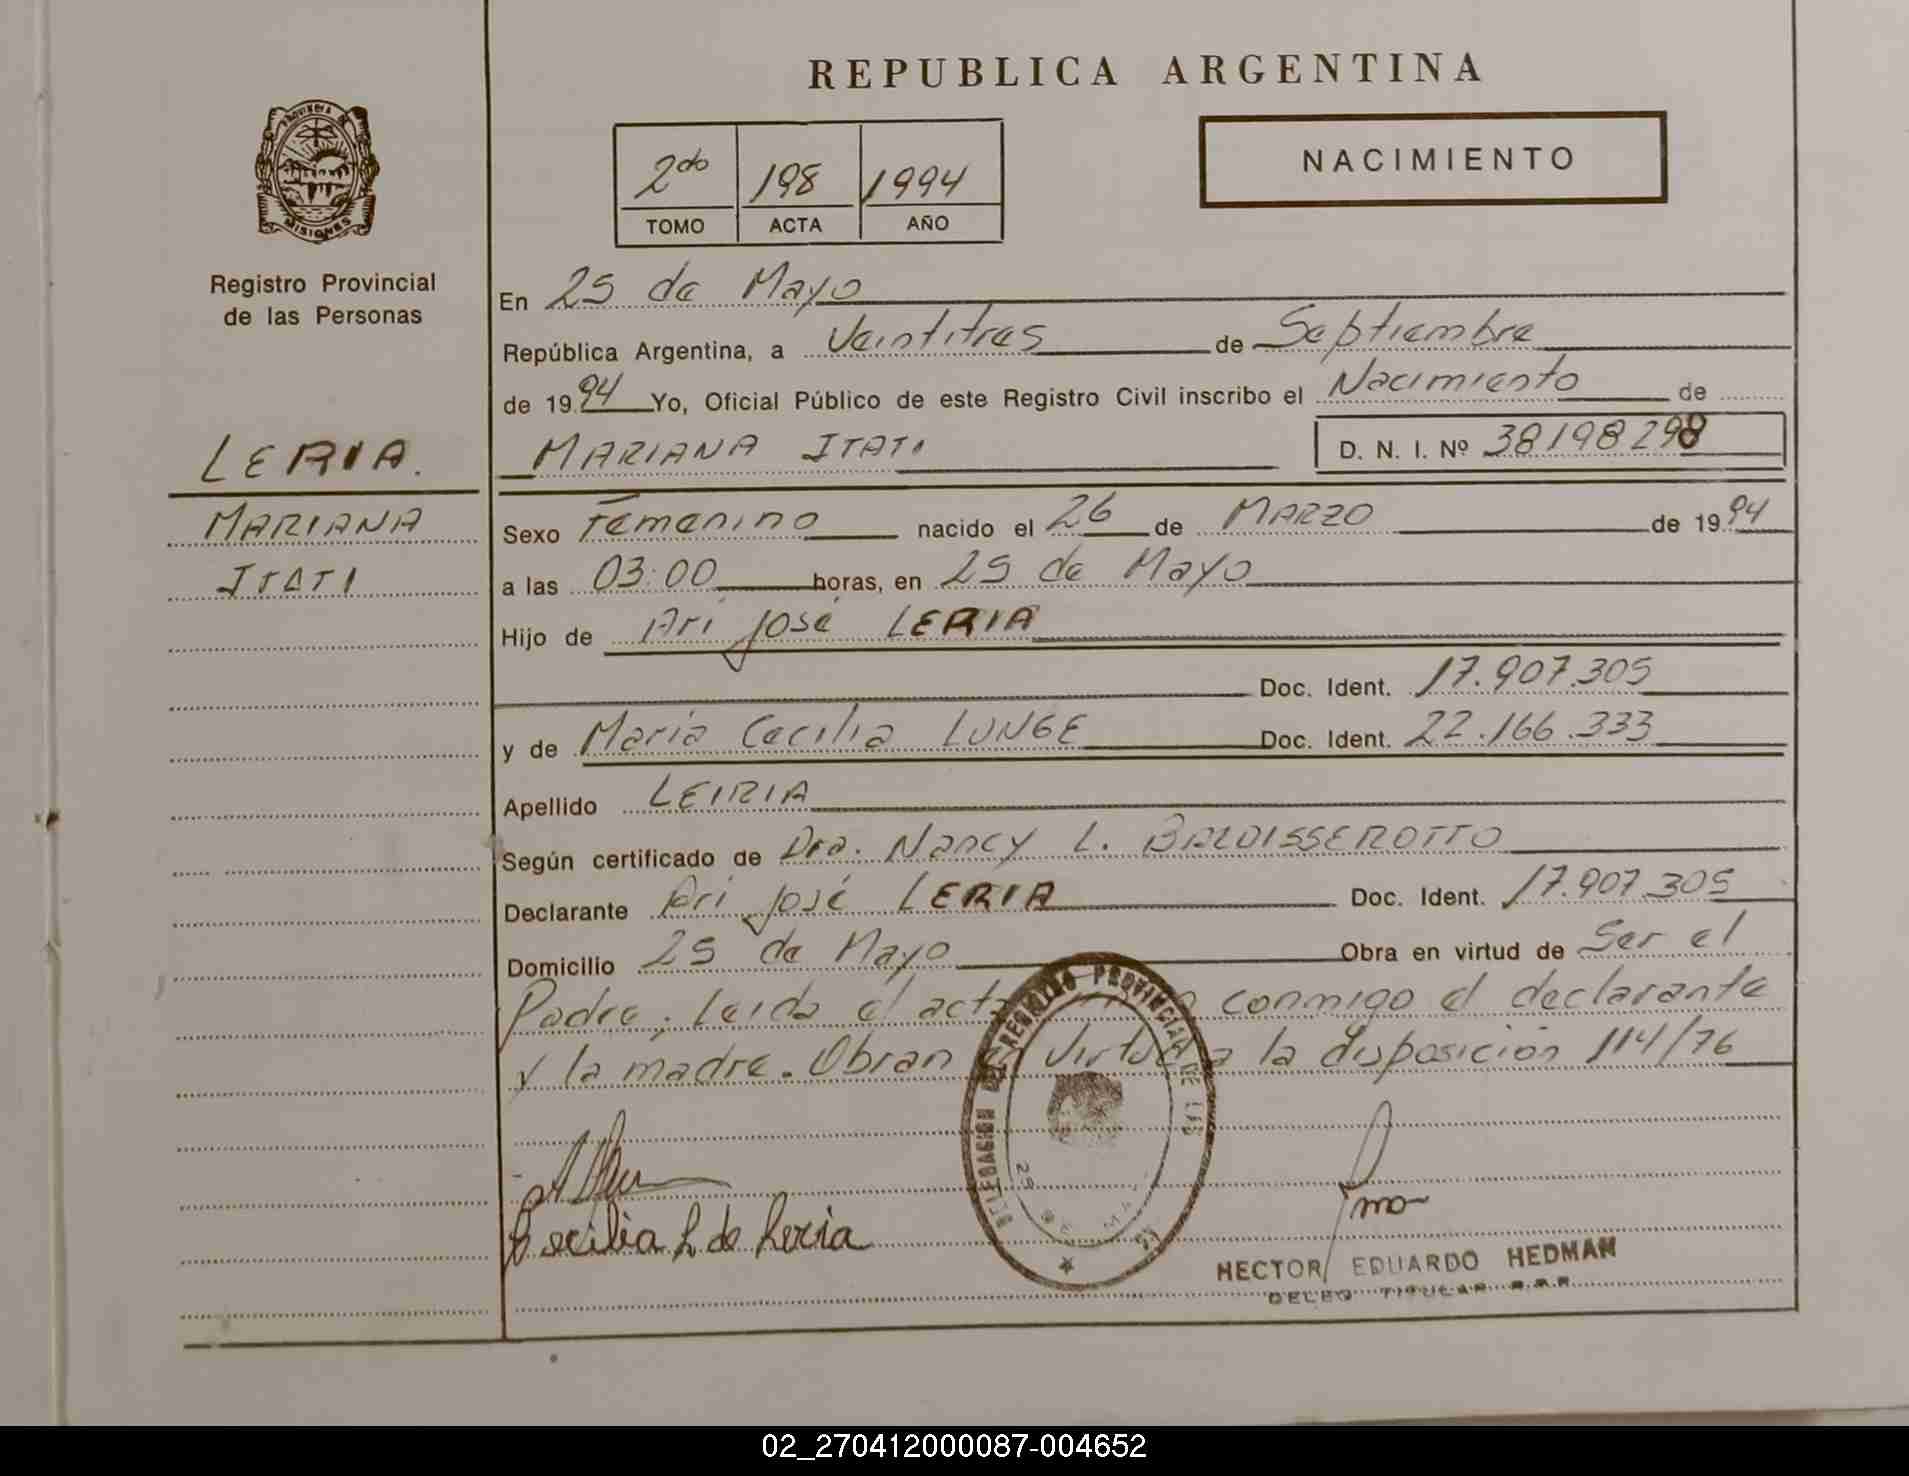 REPUBLICA ARGENTINA
PROVINCIA DE MISIONES
Registro Provincial
de las Personas
2do 198 1994
TOMO ACTA AÑO
NACIMIENTO
En 25 de Mayo
República Argentina, a Veintitres de Septiembre
de 1994 Yo, Oficial Público de este Registro Civil inscribo el Nacimiento de
MARIANA ITATI D. N. I. Nº 38198298
LERIA.
MARIANA
ITATI
Sexo Femenino nacido el 26 de MARZO de 1994
a las 03:00 horas, en 25 de Mayo
Hijo de Ari José LERIA
Doc. Ident. 17.907.305
y de Maria Cecilia LUNGE Doc. Ident. 22.166.333
Apellido LEIRIA
Según certificado de Dra. Nancy L. BALDISSEROTTO
Declarante Ari José LERIA Doc. Ident. 17.907.305
Domicilio 25 de Mayo Obra en virtud de Ser el
Padre. Leida el acta conmigo el declarante
y la madre. Obran en virtud a la disposición 114/76
DELEGACION DEL REGISTRO PROVINCIAL DE LAS
25 DE MAYO
Cecilia L. de Leria
HECTOR EDUARDO HEDMAN
DELEG. TITULAR R.P.P.
02_270412000087-004652